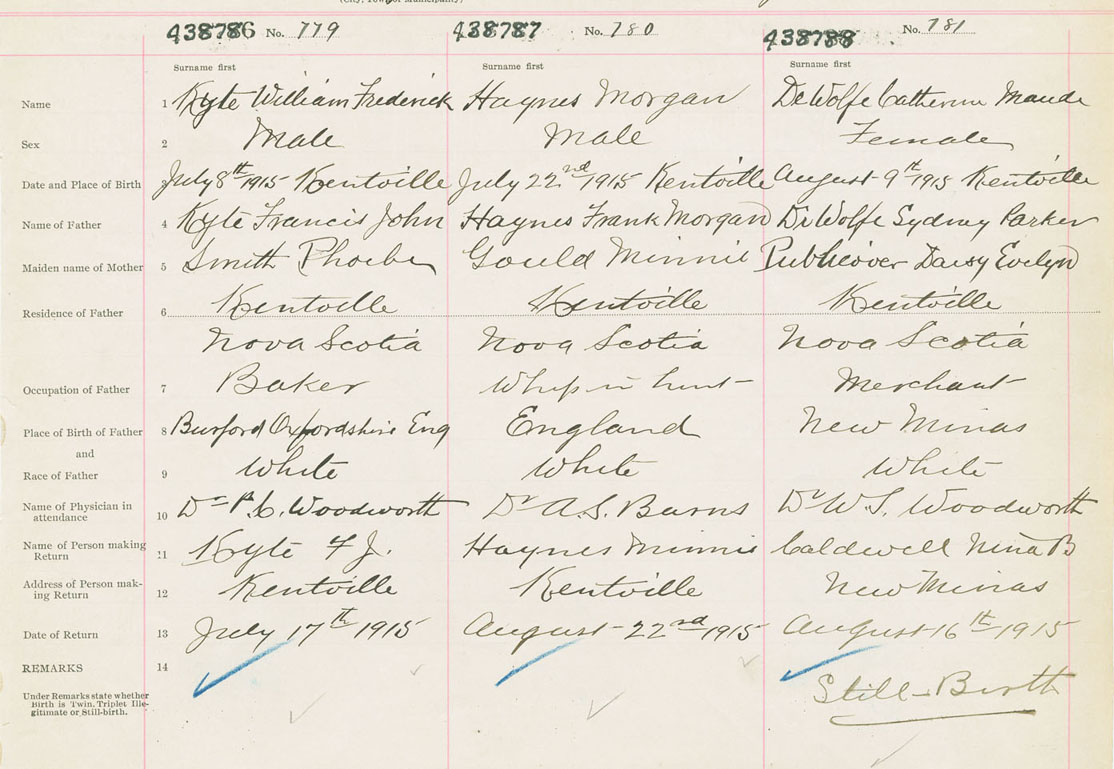 (City, Town or Municipality)
438786 No. 779 438787 No. 780 438788 No. 781
Surname first Surname first Surname first
Name 1 Kyte William Frederick Haynes Morgan DeWolfe Catherine Maude
Sex 2 Male Male Female
Date and Place of Birth 3 July 8th 1915 Kentville July 22nd 1915 Kentville August 9th 1915 Kentville
Name of Father 4 Kyte Francis John Haynes Frank Morgan DeWolfe Sydney Parker
Maiden name of Mother 5 Smith Phoebe Gould Minnie Publicover Daisy Evelyn
Residence of Father 6 Kentville Kentville Kentville
Nova Scotia Nova Scotia Nova Scotia
Occupation of Father 7 Baker Whip in hunt Merchant
Place of Birth of Father 8 Burford Oxfordshire Eng England New Minas
and
Race of Father 9 White White White
Name of Physician in
attendance 10 Dr Woodworth Dr A.S. Burns Dr W.S. Woodworth
Name of Person making
Return 11 Kyte F J. Haynes Minnie Caldwell Nina B
Address of Person mak-
ing Return 12 Kentville Kentville New Minas
Date of Return 13 July 17th 1915 August 22nd 1915 August 16th 1915
REMARKS 14
Under Remarks state whether
Birth is Twin, Triplet Ille-
gitimate or Still-birth.
Still-Birth